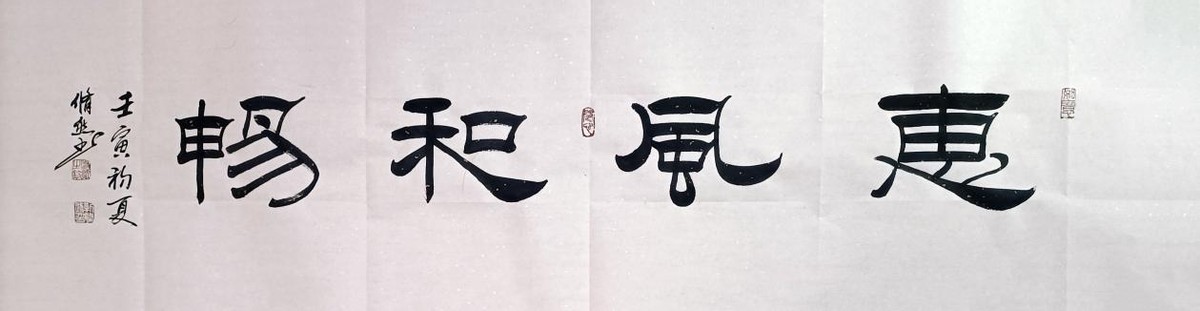 惠風和暢
壬寅初夏
脩然